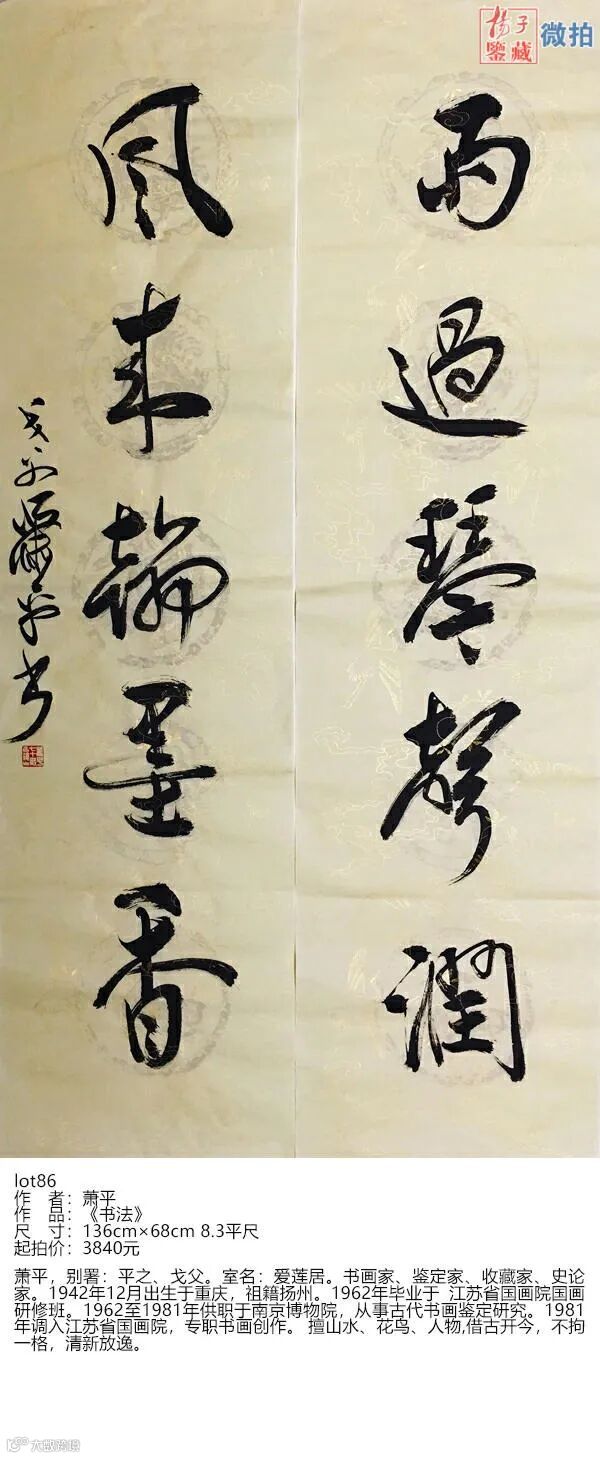 揚子
鑒藏
微拍
雨過琴聲潤
风来翰墨香
蕭平书
lot86
作 者：萧平
作 品：《书法》
尺 寸：136cm×68cm 8.3平尺
起拍价：3840元
萧平，别署：平之、戈父。室名：爱莲居。书画家、鉴定家、收藏家、史论
家。1942年12月出生于重庆，祖籍扬州。1962年毕业于 江苏省国画院国画
研修班。1962至1981年供职于南京博物院，从事古代书画鉴定研究。1981
年调入江苏省国画院，专职书画创作。 擅山水、花鸟、人物,借古开今，不拘
一格，清新放逸。
大数跨境